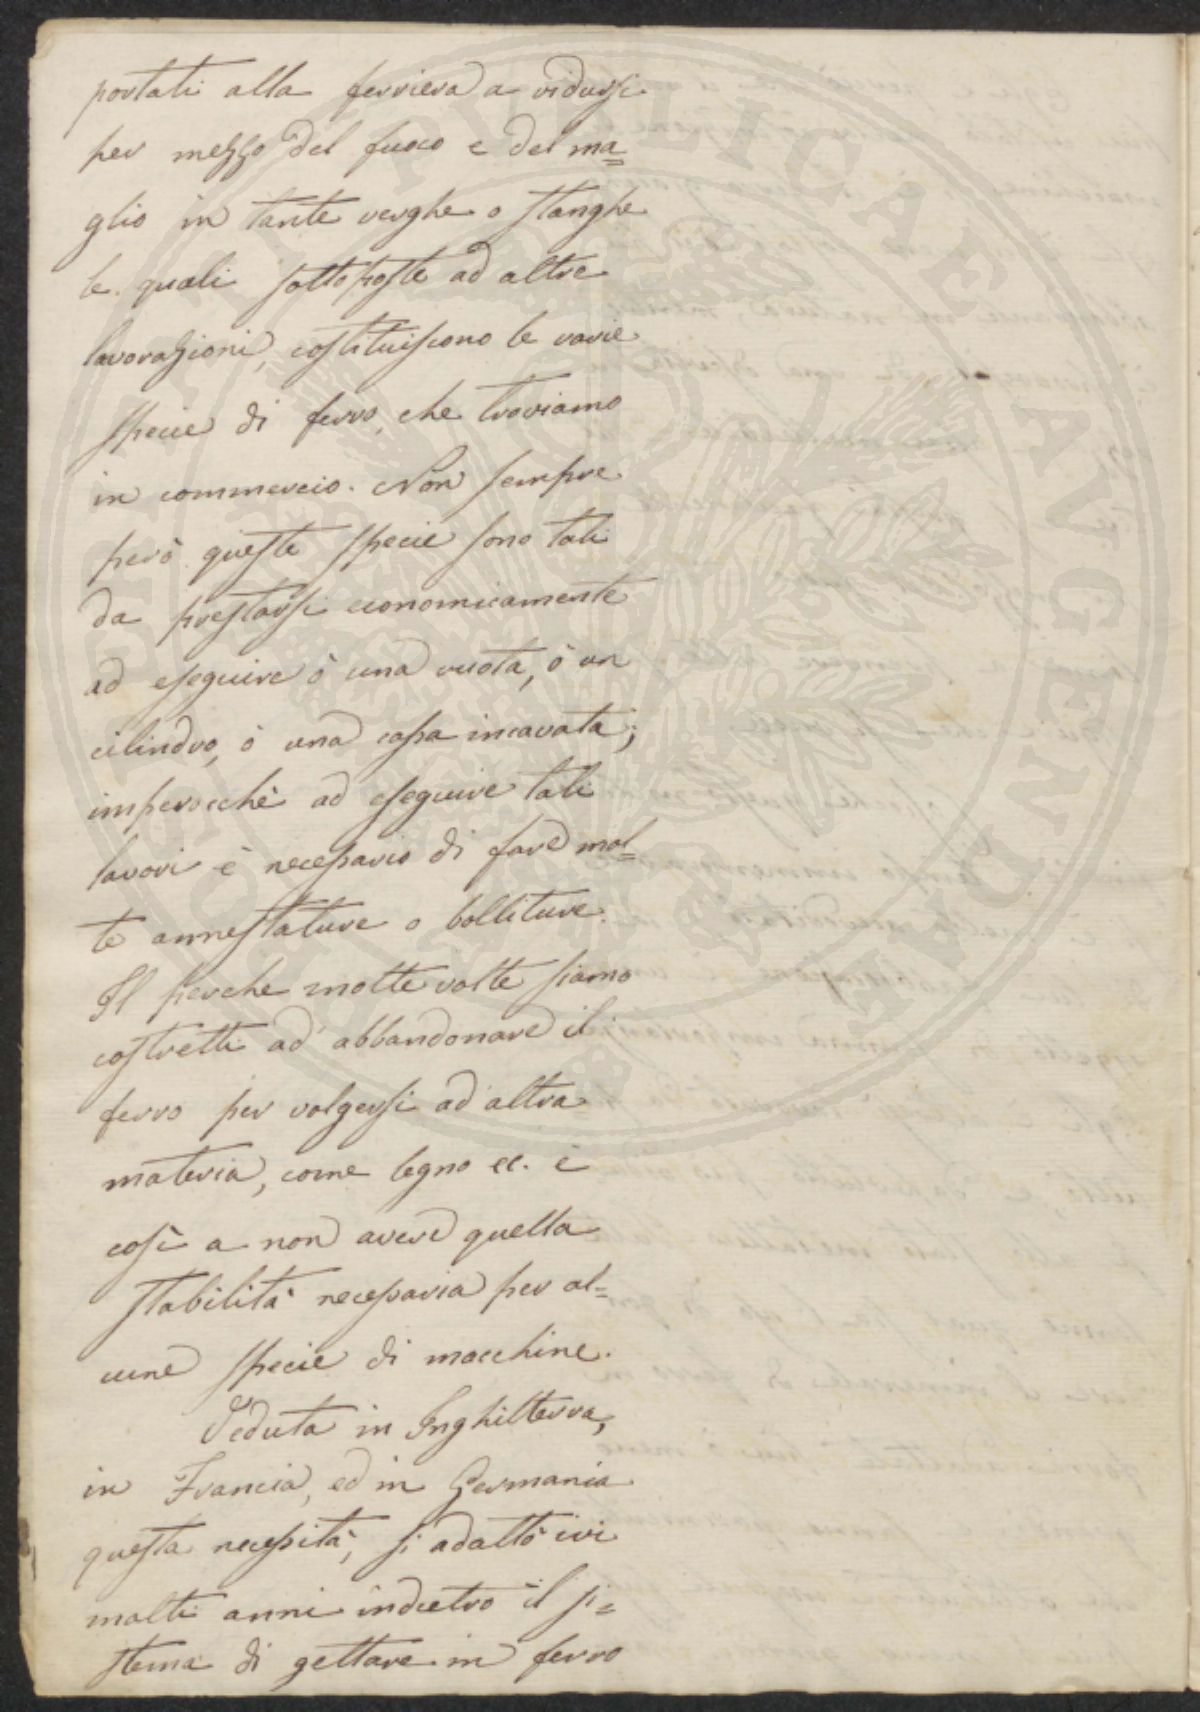 portati alla ferriera a ridursi
per mezzo del fuoco e del ma=
glio in tante verghe o stanghe
le quali sottoposte ad altre
lavorazioni, costituiscono le varie
specie di ferro, che troviamo
in commercio. Non sempre
però queste specie sono tali
da prestarsi economicamente
ad eseguire ò una ruota, ò un
cilindro, ò una cassa incavata;
imperocchè ad eseguire tali
lavori è necessario di fare mol=
te annestature o bolliture.
Il perche molte volte siamo
costretti ad abbandonare il
ferro per volgersi ad altra
materia, come legno ec. e
così a non avere quella
stabilità necessaria per al=
cune specie di macchine.
Veduta in Inghilterra,
in Francia, ed in Germania
questa necessità, si adattò ivi
molti anni indietro il si=
stema di gettare in ferro